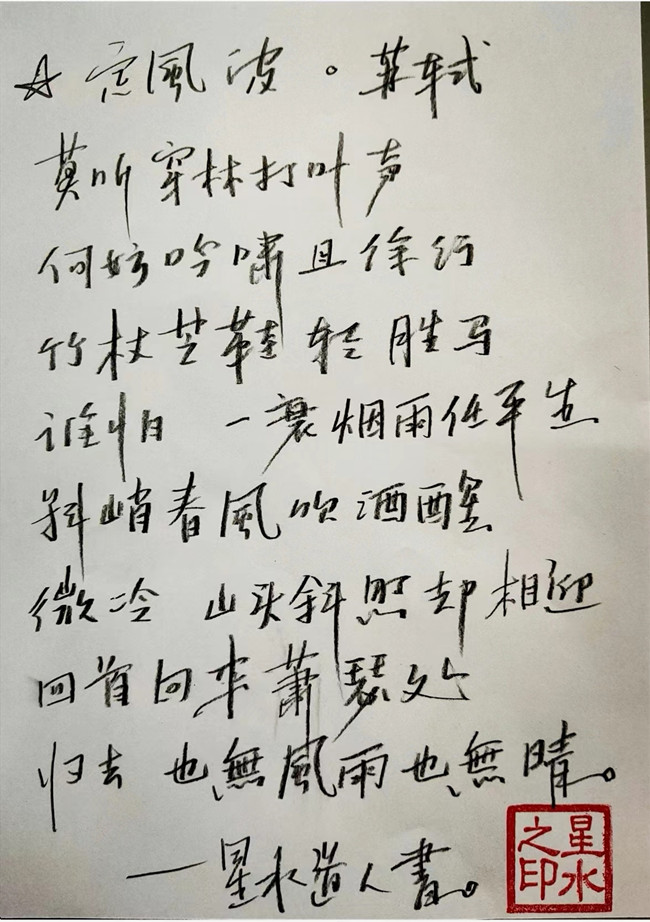 ☆ 定風波。苏轼
莫听穿林打叶声
何妨吟啸且徐行
竹杖芒鞋轻胜马
谁怕 一蓑烟雨任平生
料峭春風吹酒醒
微冷 山头斜照却相迎
回首向来萧瑟处
归去 也無風雨也無晴。
——星水道人書。
星水之印